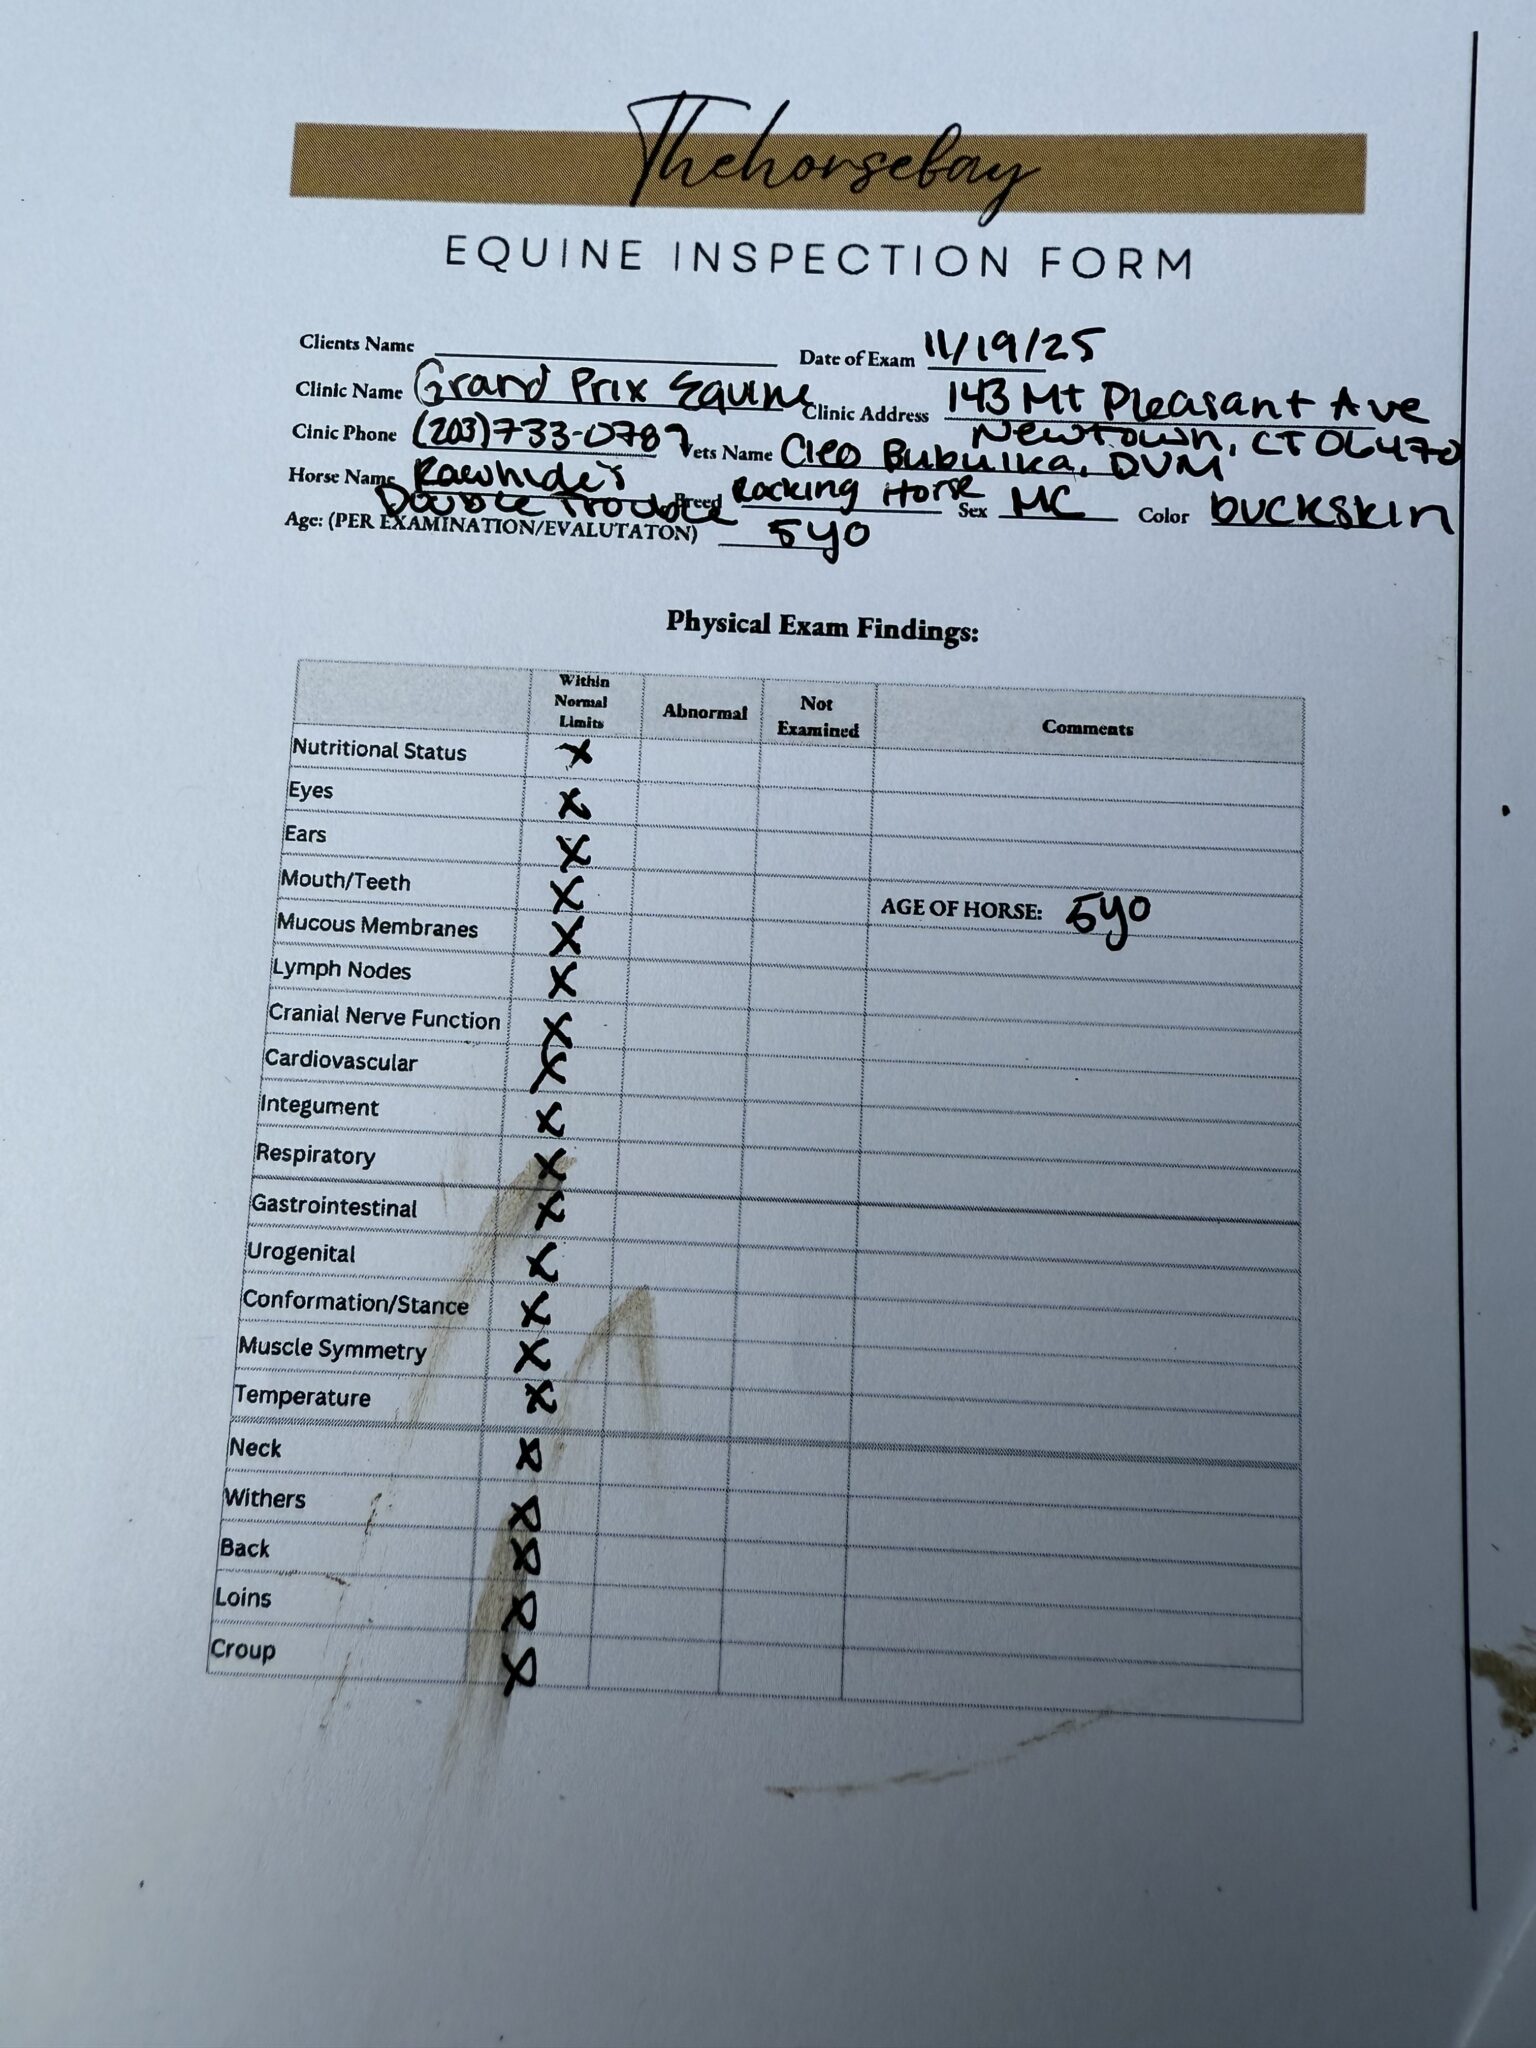 Thehorsebay
EQUINE INSPECTION FORM
Clients Name Date of Exam 11/19/25
Clinic Name Grand Prix Equine Clinic Address 143 Mt Pleasant Ave
Newtown, CT 06470
Cinic Phone (203)733-0789 Vets Name Cleo Bubulka, DVM
Horse Name Rawhide's Breed Racking Horse Sex MC Color buckskin
Double Trouble
Age: (PER EXAMINATION/EVALUTATON) 5yo
Physical Exam Findings:
Within Normal Limits Abnormal Not Examined Comments
Nutritional Status X
Eyes X
Ears X
Mouth/Teeth X AGE OF HORSE: 5yo
Mucous Membranes X
Lymph Nodes X
Cranial Nerve Function X
Cardiovascular X
Integument X
Respiratory X
Gastrointestinal X
Urogenital X
Conformation/Stance X
Muscle Symmetry X
Temperature X
Neck X
Withers X
Back X
Loins X
Croup X